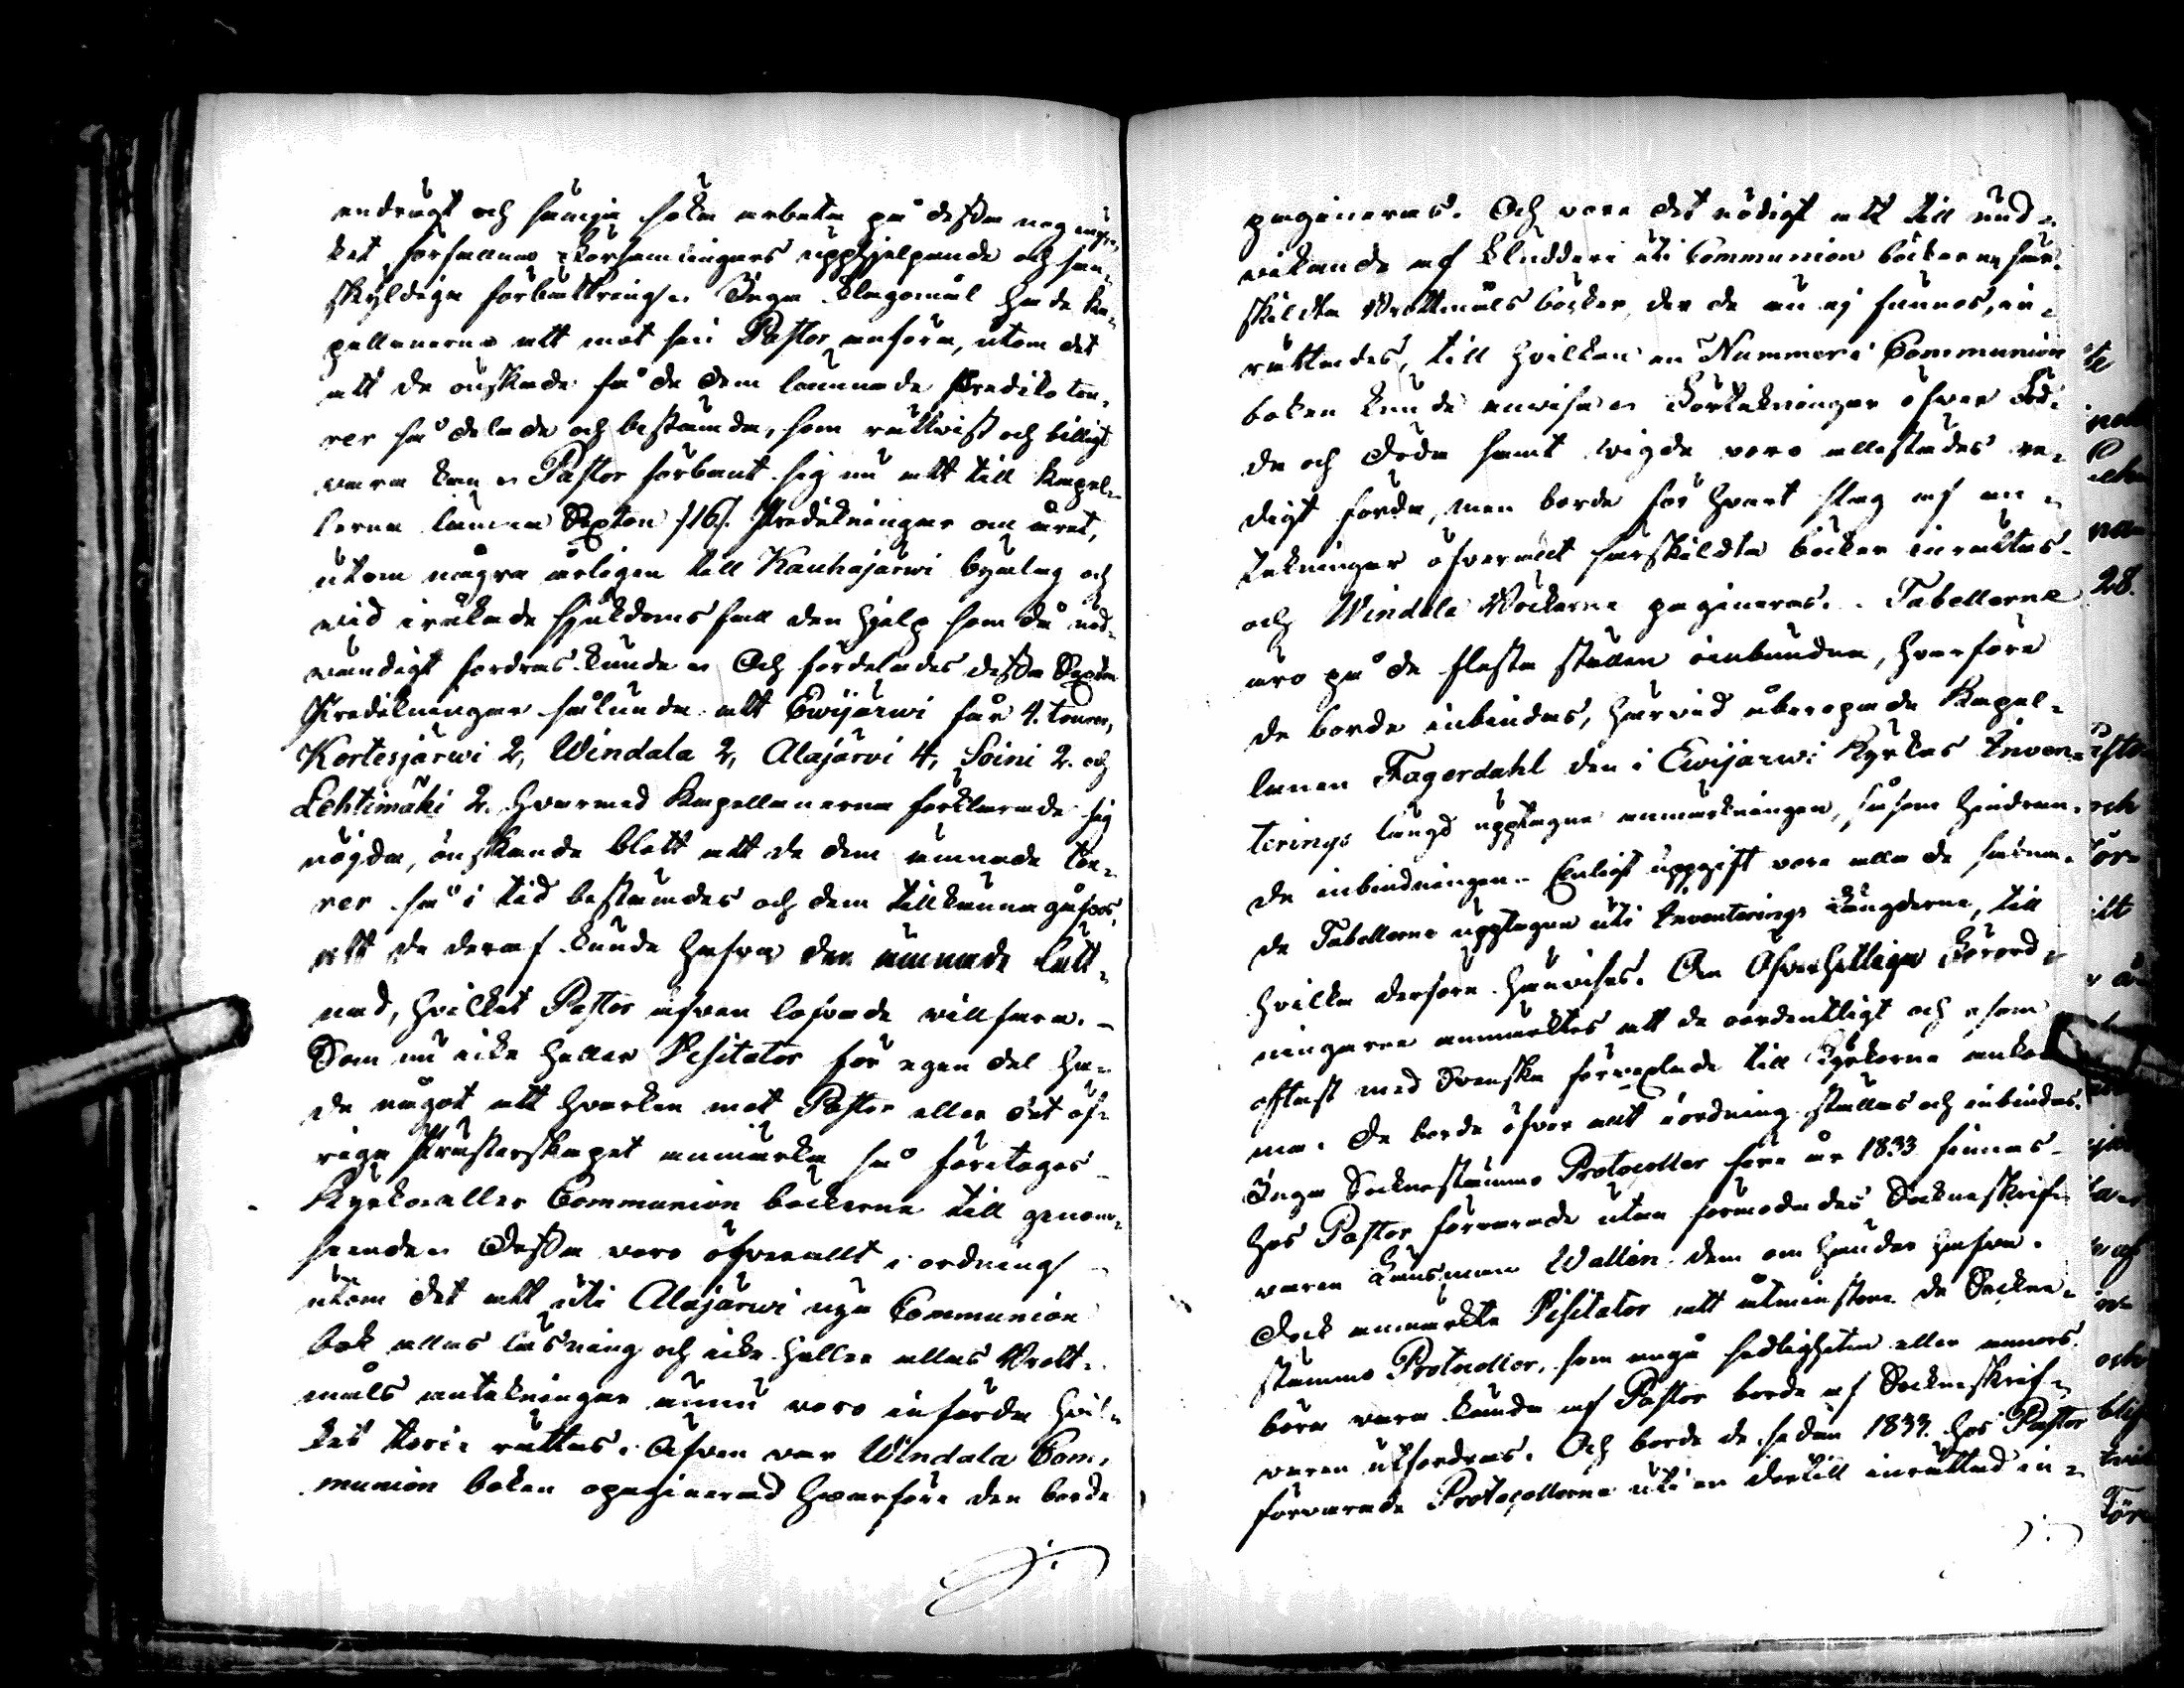 endrägt och sämja söka arbeta på dessa nog myc-
ket förfallna Församlingars upphjelpande och san-
skyldiga förbättring. Inga klagomål hade Ka-
pellanerne att mot sin Pastor anföra, utom det
att de önskade få de dem lemnade Prediko tou-
rer så delade och bestämda, som rättvist och billigt
vara kan. Pastor förbant sig nu att till Kapel-
lerna lemna Sexton /16/. Predikningar om året,
utom några årligen till Kauhajärwi byalag och
vid iråkade sjukdoms fall den hjelp som då nöd-
vändigt fordras kunde. Och fördelades dessa Sexton
Predikningar sålunda att Ewijärwi får 4. tourer,
Kortesjärwi 2, Windala 2, Alajärvi 4, Soini 2. och
Lehtimäki 2. hvarmed Kapellanerna förklarade sig
nöjda, önskande blott att de dem ämnade tou-
rer så i tid bestämdes och dem tillkänna gåfvos,
att de deraf kunde hafva den ämnade lätt-
nad, hvilket Pastor äfven lofvade villfara. -
Som nu icke heller Visitator för egen del ha-
de något att hvarken mot Pastor eller det öf-
riga Prästerskapet anmärka så företogos
Kyrko eller Communion böckerna till genom-
seende. Dessa voro öfverallt i ordning
utom det att uti Alajärwi nya Communion
bok allas läsning och icke heller allas Brott-
måls antekningar ännu voro införda hvil-
ket borde rättas. Äfven var Windala Com-
munion boken opaginerad hvarföre den borde
pagineras. Och vore det nödigt att till und-
vikande af kludderi uti Communion böckerna sär-
skildta Brottmåls böcker, der de nu ej funnos, in-
rättades, till hvilken en Nummer i Communion
boken kunde anvisa. Förtekningar öfver Föd-
da och Döda samt wigde voro allestädes re-
digt förda, men borde för hvart slag af an-
tekningar öfverallt särskildta böcker inrättas
och Windala Böckerna pagineras. Tabellerna
äro på de flesta ställen oinbundna, hvarföre
de borde inbindas, härvid åberopade Kapel-
lanen Fagerdahl den i Ewijärwi Kyrkas Inven-
terings längd upptagna anmärkningen, såsom hindran-
de inbindningen. Enligt uppgift vore alla de saknade
de Tabellerna upptagna uti Inventerings Längderna, till
hvilka derföre hänvises. Om Öfverhetliga Förord-
ningarna anmärktes att de oordentligt och
oftast med Svenska förvexlade till Kyrkorna anko
ma. De borde öfver allt i ordning ställas och inbindas.
Inga Sockenstämmo Protocoller före år 1833 finnas
hos Pastor förvarade utan förmodades Sockneskrif-
varen Länsman Wallin dem om händer hafva.
Dock anmärkte Visitator att åtminstone de Socken-
stämmo Protocoller, som angå sedligheten eller annors
böra vara kända af Pastor borde af Sockneskrif-
varen utfordras. Och borde de sedan 1833. hos Pastor
förvarade Protocollerna uti en dertill inrättad in-
28.
och